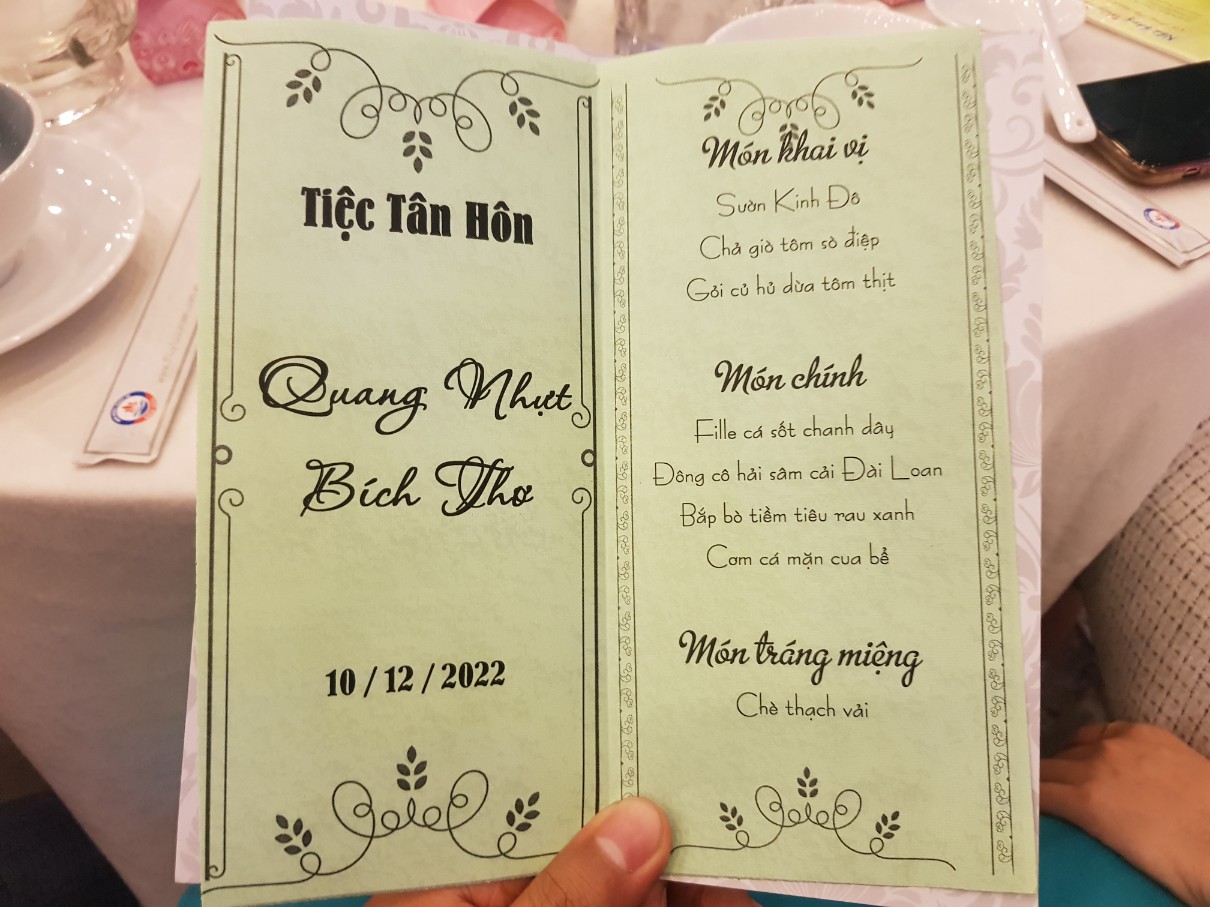 Tiệc Tân Hôn
Quang Nhựt
Bích Thơ
10 / 12 / 2022
Món khai vị
Sườn Kinh Đô
Chả giò tôm sò điệp
Gỏi củ hủ dừa tôm thịt
Món chính
Fille cá sốt chanh dây
Đông cô hải sâm cải Đài Loan
Bắp bò tiềm tiêu rau xanh
Cơm cá mặn cua bể
Món tráng miệng
Chè thạch vải